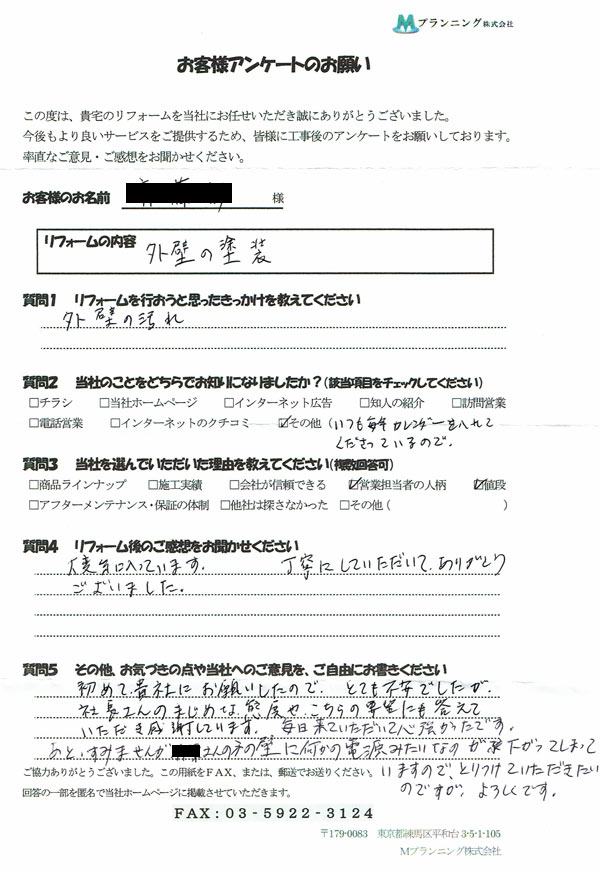 Mプランニング株式会社
お客様アンケートのお願い
この度は、貴宅のリフォームを当社にお任せいただき誠にありがとうございました。
今後もより良いサービスをご提供するため、皆様に工事後のアンケートをお願いしております。
率直なご意見・ご感想をお聞かせください。
お客様のお名前 様
リフォームの内容 外壁の塗装
質問1 リフォームを行おうと思ったきっかけを教えてください
外壁の汚れ
質問2 当社のことをどちらでお知りになりましたか？(該当項目をチェックしてください)
□チラシ □当社ホームページ □インターネット広告 □知人の紹介 □訪問営業
□電話営業 □インターネットのクチコミ ☑その他 (いつも毎年カレンダーを入れて
くださっているので。
質問3 当社を選んでいただいた理由を教えてください(複数回答可)
□商品ラインナップ □施工実績 □会社が信頼できる ☑営業担当者の人柄 ☑値段
□アフターメンテナンス・保証の体制 □他社は探さなかった □その他 ( )
質問4 リフォーム後のご感想をお聞かせください
大変気に入っています。 丁寧にしていただいて、ありがとう
ございました。
質問5 その他、お気づきの点や当社へのご意見を、ご自由にお書きください
初めて貴社にお願いしたので、とても不安でしたが、
社長さんのまじめな態度や、こちらの要望にも答えて
いただき感謝しています。毎日来ていただいて心強かったです。
あと、すみませんが さんの の壁に何かの電源みたいなのが 下がってしまって
いますので、とりつけていただきたい
のですが、よろしくです。
ご協力ありがとうございました。この用紙をＦＡＸ、または、郵送でお送りください。
回答の一部を匿名で当社ホームページに掲載させていただきます。
FAX：03-5922-3124
〒179-0083 東京都練馬区平和台3-5-1-105
Mプランニング株式会社